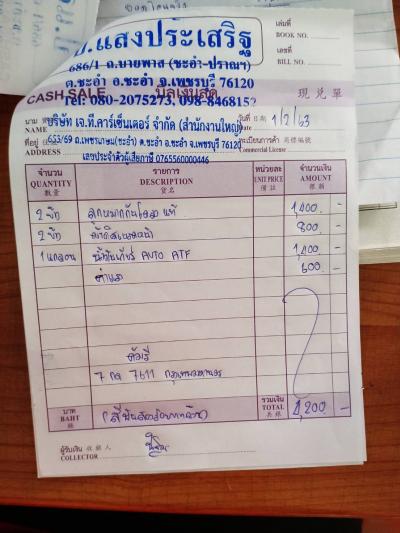 เล่มที่
BOOK NO.
เลขที่
BILL NO.
แสงประเสริฐ
686/1 ถ.นายพาส (ชะอำ-ปราณฯ)
ต.ชะอำ อ.ชะอำ จ.เพชรบุรี 76120
CASH SALE บิลเงินสด 現兌單
โทร: 080-2075273, 098-8468152
นาม NAME บริษัท เจ.ที.คาร์เซ็นเตอร์ จำกัด (สำนักงานใหญ่) วันที่ 日期 Date 1/2/63
ที่อยู่ ADDRESS ถ.เพชรเกษม(ชะอำ) ต.ชะอำ อ.ชะอำ จ.เพชรบุรี 76120 ทะเบียนการค้า 商標編號 Commercial License
เลขประจำตัวผู้เสียภาษี 0765560000446
จำนวน รายการ หน่วยละ จำนวนเงิน
QUANTITY DESCRIPTION UNIT PRICE AMOUNT
數量 貨名
2 ลูกหมากกันโคลง แท้ 1,400 -
2 800 -
1 แกลอน น้ำมันเกียร์ AUTO ATF 1,400 -
ค่าแรง 600 -
7 กด 7611 กรุงเทพมหานคร
บาท BAHT (สี่พันสองร้อยบาทถ้วน) รวมเงิน TOTAL 4,200 -
ผู้รับเงิน 收銀人
COLLECTOR